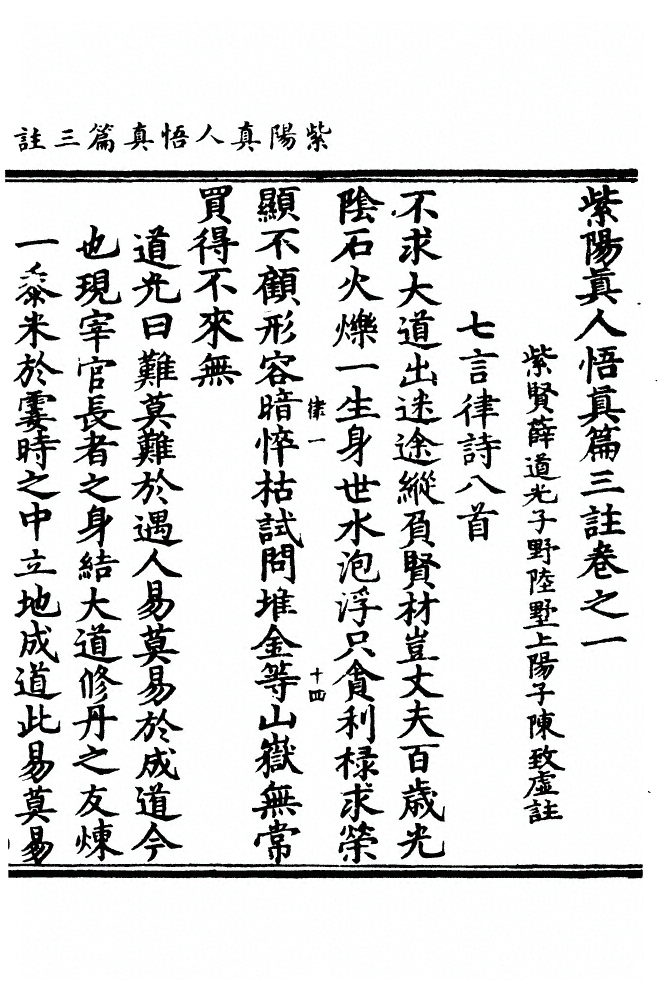 紫陽真人悟真篇三註
紫陽眞人悟眞篇三註卷之一
紫賢薛道光子野陸墅上陽子陳致虛註
七言律詩八首
不求大道出迷途縱負賢材豈丈夫百歲光
陰石火爍一生身世水泡浮只貪利祿求榮
律一
十四
顯不顧形容暗悴枯試問堆金等山嶽無常
買得不來無
道光曰難莫難於遇人易莫易於成道今
也現宰官長者之身結大道修丹之友煉
一黍米於霎時之中立地成道此易莫易